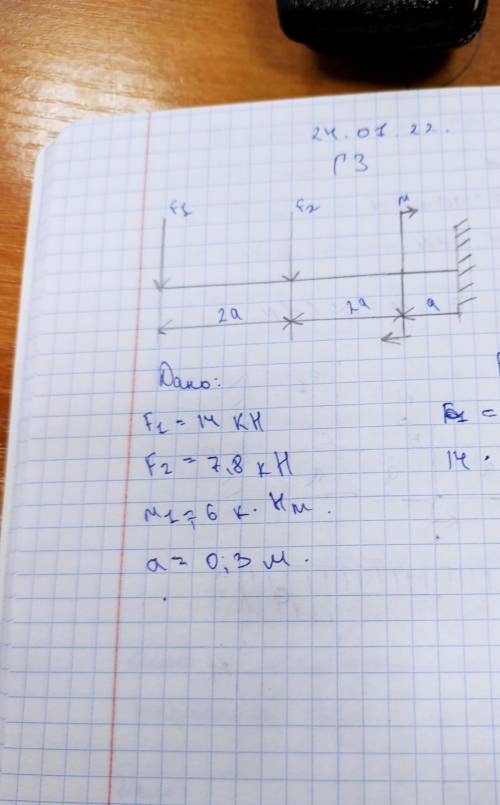 24.01.22.
ГЗ
F1 F2 м
2a 2a a
Дано:
F1 = 14 кН
F2 = 7,8 кН
м1 = 6 к·Нм.
a = 0,3 м.
14 ·